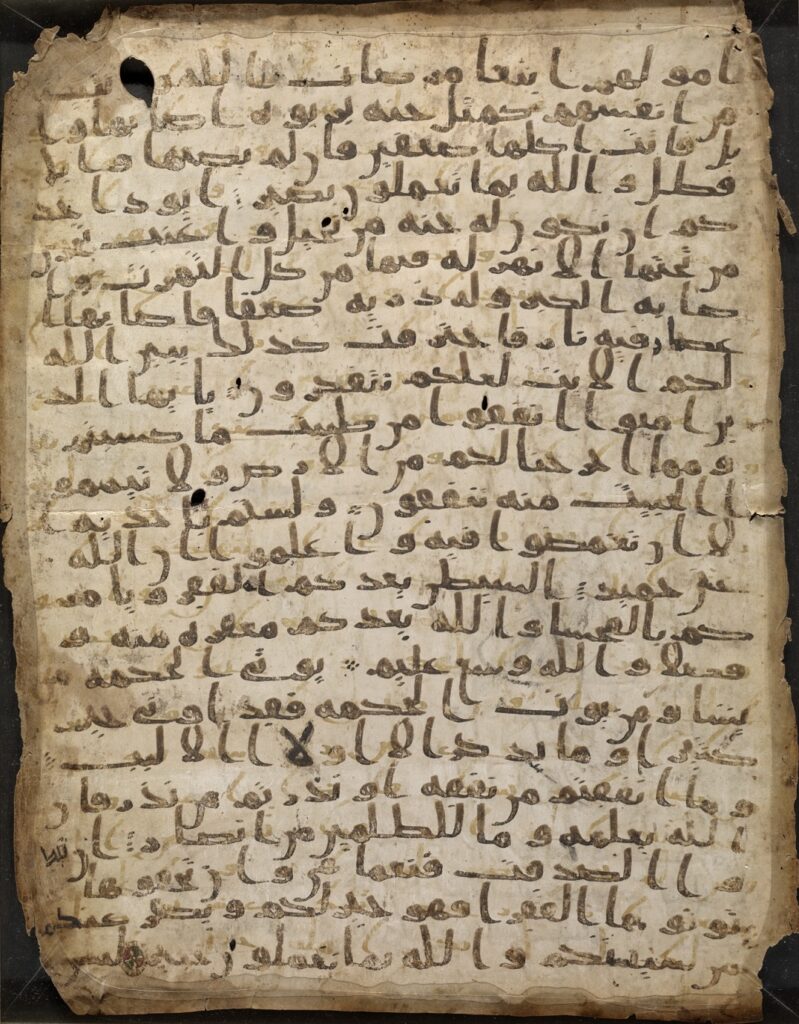 ا مولهم ا بتغا مرضات ا لله و تثبيتا
من ا نفسهم كمثل جنه بربوه ا صابها و ا
بل فاتت ا كلها ضعفين فان لم يصبها و ابل
فطل و ا لله بما تعملون بصير ا يود ا حد
كم ا ن تكون له جنه من نخيل و ا عنب تجري
من تحتها ا لا نهر له فيها من كل ا لثمرت و ا
صا به ا لكبر و له ذريه ضعفا فا صا بها ا
عصار فيه نار فا حترقت كذلك يبين ا لله
لكم ا لا يت لعلكم تتفكرون يا يها ا لذ
ين ا منوا ا نفقوا من طيبت ما كسبتم
و مما ا خرجنا لكم من ا لا رض و لا تيمموا
ا لخبيث منه تنفقون و لستم باخذيه ا
لا ا ن تغمضوا فيه و ا علموا ا ن ا لله
غني حميد ا لشيطن يعد كم ا لفقر و يا مر
كم با لفحشا و ا لله يعد كم مغفره منه و
فضلا و ا لله وسع عليم يوتي ا لحكمه من
يشا و من يوت ا لحكمه فقد ا وتي خير
كثيرا و ما يذكر ا لا ا و لا ا لا لبب
و ما ا نفقتم من نفقه ا و نذرتم من نذر فان
ا لله يعلمه و ما للظلمين من ا نصار ا ن تبد
و ا ا لصدقت فنعما هي و ا ن تخفوها
و توتوها ا لفقرا فهو خير لكم و يكفر عنكم
من سيتكم و ا لله بما تعملون خبير ليس